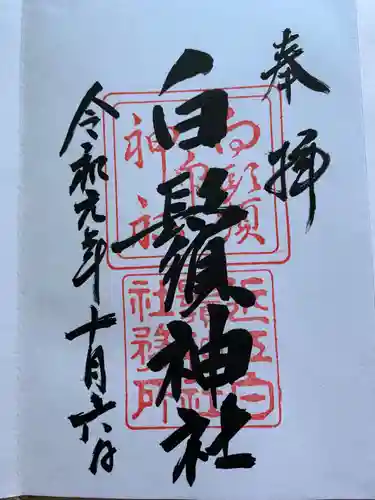 奉拝
白鬚神社
令和元年十月六日
白鬚
神社
近江白
鬚神社
社務所